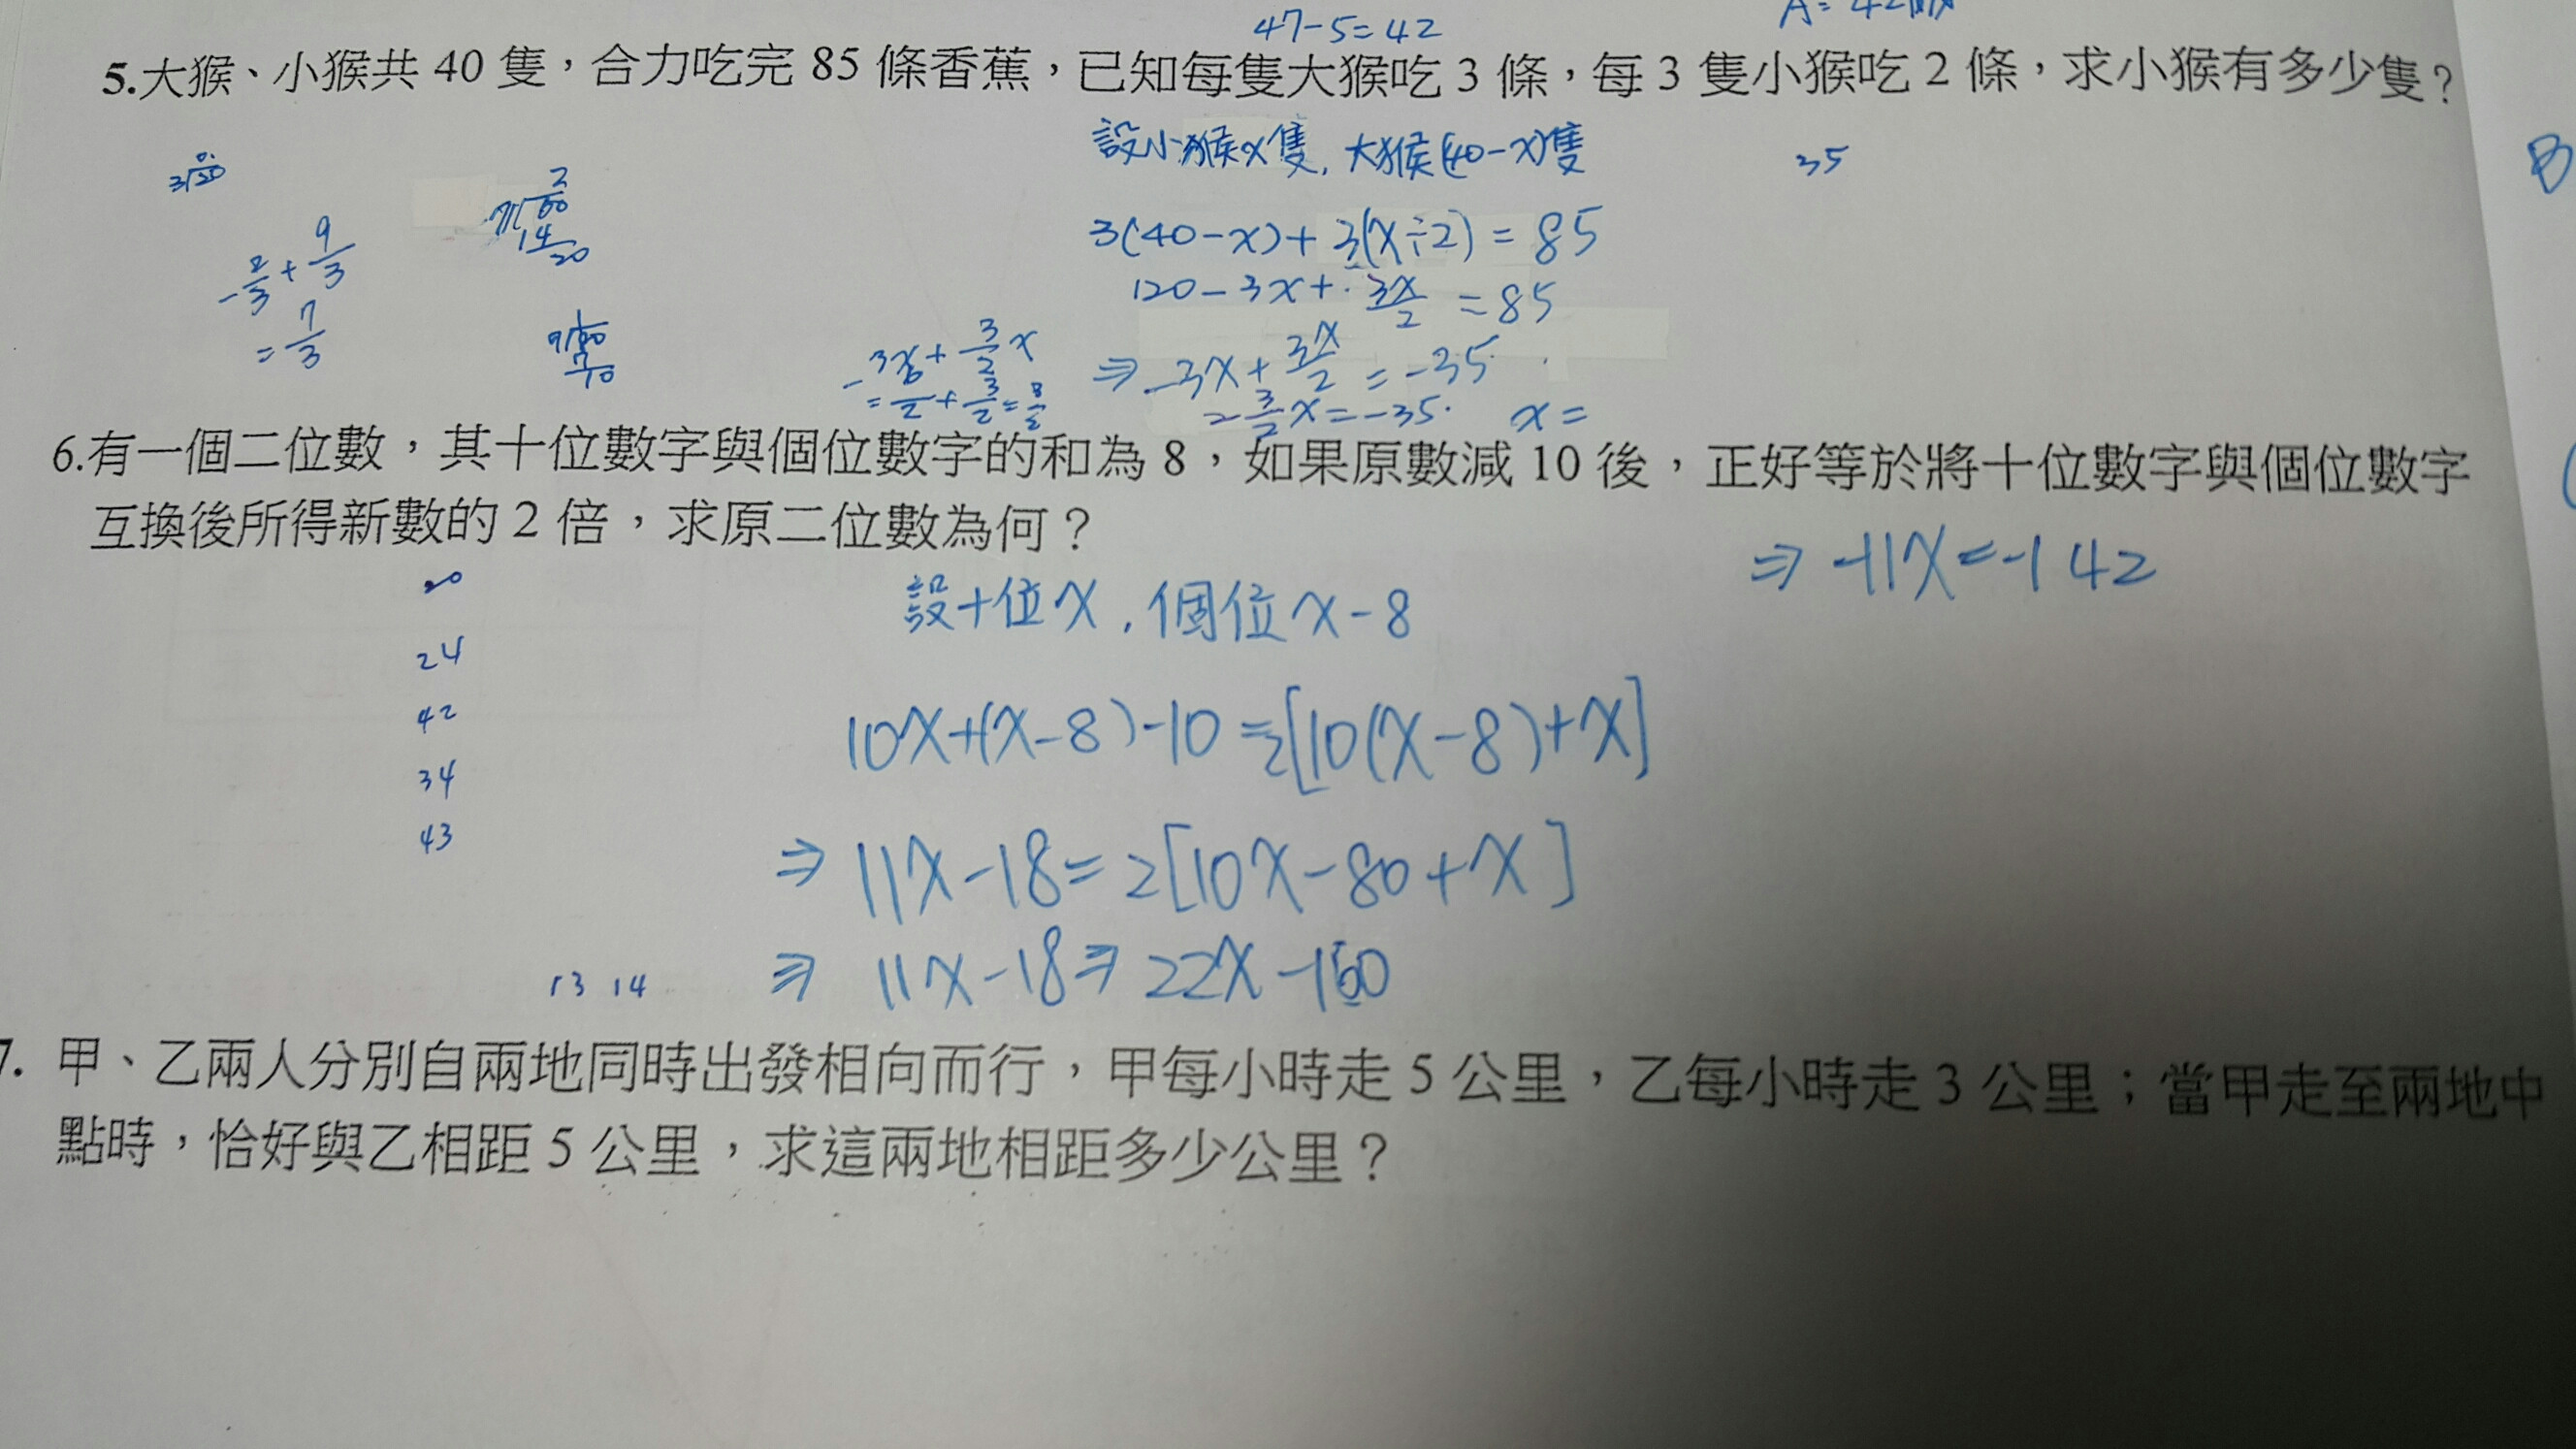 47-5=42
5.大猴、小猴共 40 隻，合力吃完 85 條香蕉，已知每隻大猴吃 3 條，每 3 隻小猴吃 2 條，求小猴有多少隻？
設小猴x隻, 大猴(40-x)隻
35
3(40-x)+3(x÷2)=85
120-3x+3x/2=85
⇒-3x+3x/2=-35
-3/2x=-35 x=
-2/3+9/3
=7/3
-3x+3/2x
6.有一個二位數，其十位數字與個位數字的和為 8，如果原數減 10 後，正好等於將十位數字與個位數字
互換後所得新數的 2 倍，求原二位數為何？
⇒ -11x=-142
設十位x, 個位x-8
20
24
42
34
43
10x+(x-8)-10=2[10(x-8)+x]
⇒ 11x-18=2[10x-80+x]
⇒ 11x-18=22x-160
13 14
7. 甲、乙兩人分別自兩地同時出發相向而行，甲每小時走 5 公里，乙每小時走 3 公里；當甲走至兩地中
點時，恰好與乙相距 5 公里，求這兩地相距多少公里？